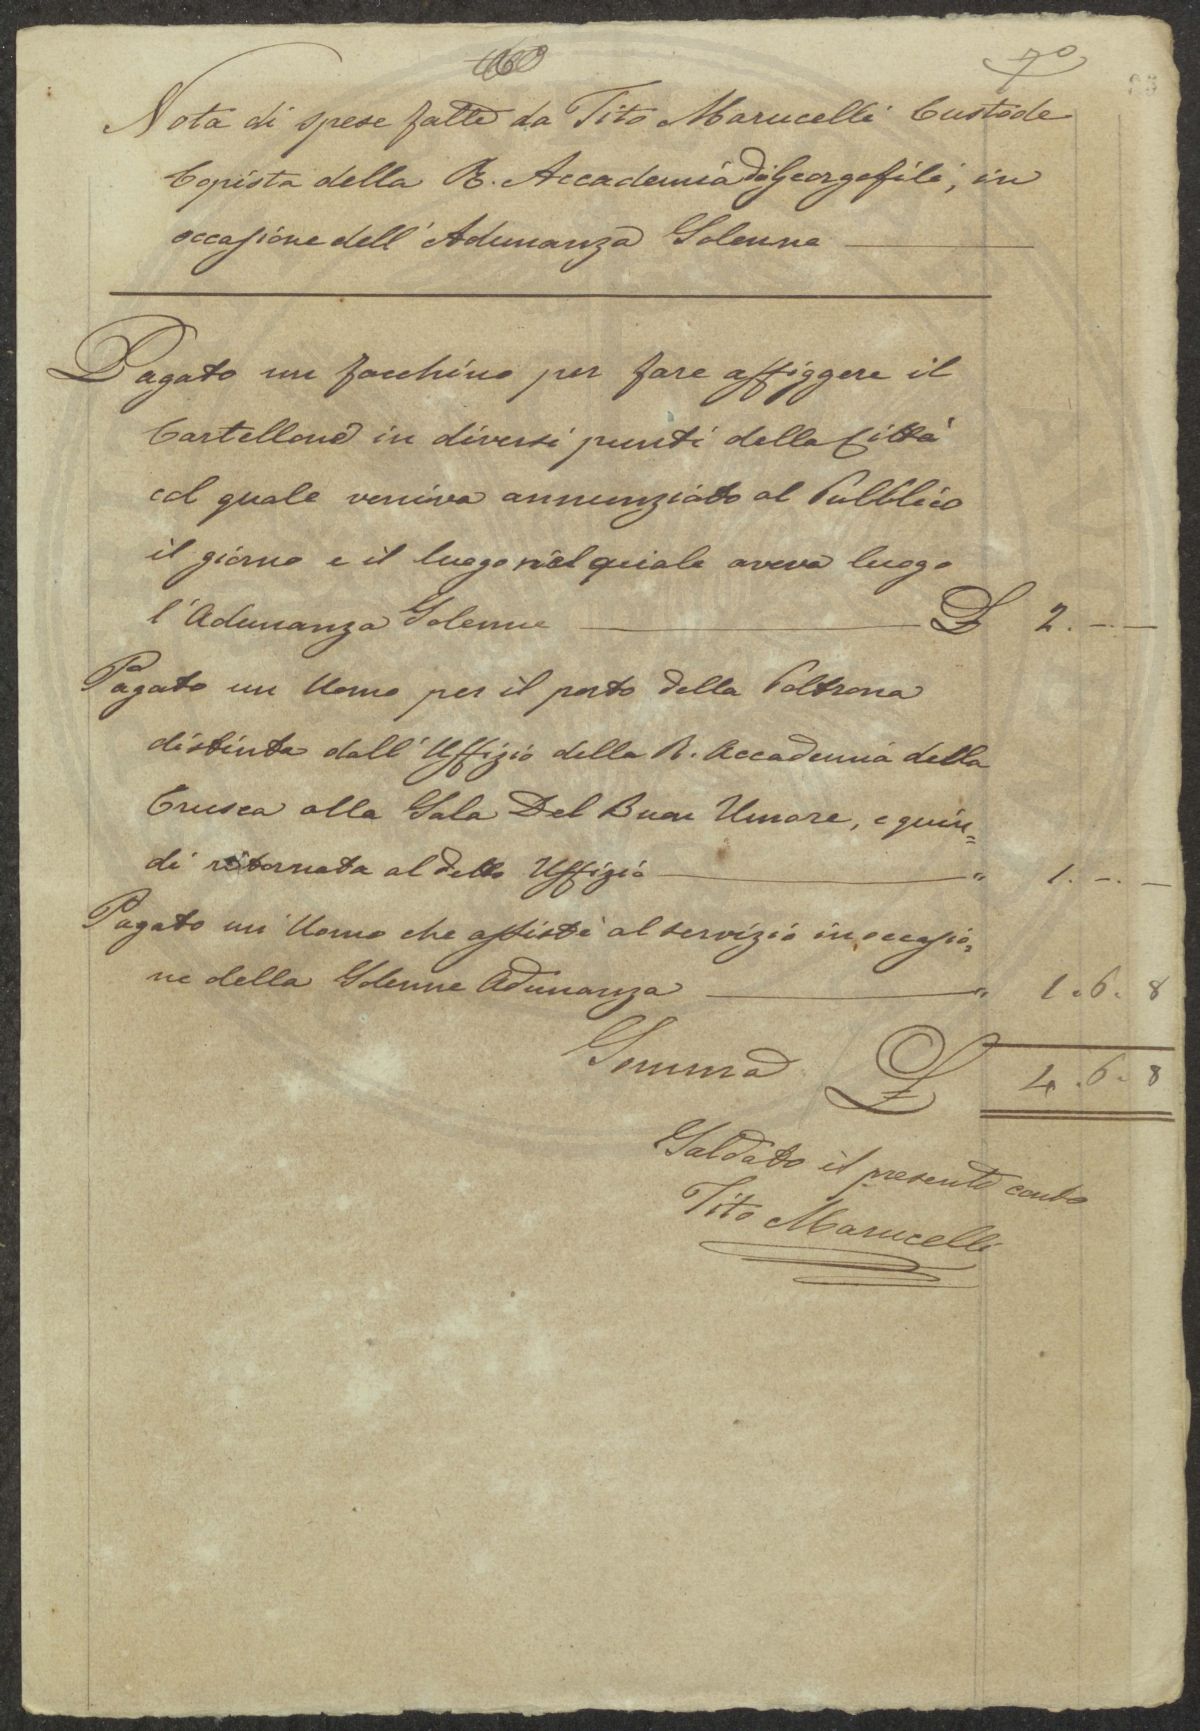 7º
Nota di spese fatte da Tito Marucelli Custode
Copista della R. Accademia dei Georgofili, in
occasione dell'Adunanza Solenne
Pagato un facchino per fare affiggere il
Cartellone in diversi punti della Città
col quale veniva annunziato al Pubblico
il giorno e il luogo nel quale aveva luogo
l'Adunanza Solenne £ 2. -. -
Pagato un Uomo per il porto della Poltrona
distinta dall'Uffizio della R. Accademia della
Crusca alla Sala Del Buon Umore, e quin=
di ritornata al detto Uffizio " 1. -. -
Pagato un Uomo che assistè al servizio in occasio=
ne della Solenne Adunanza " 1. 6. 8
Somma £ 4. 6. 8
Saldato il presente conto
Tito Marucelli